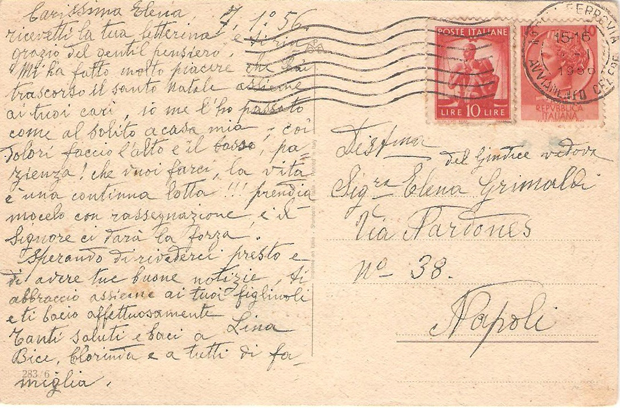 Carissima Elena 7.1°56.
ricevetti la tua letterina e ti rin
grazio del gentil pensiero.
Mi ha fatto molto piacere che hai
trascorso il santo natale assieme
ai tuoi cari, io me l'ho passato
come al solito a casa mia, coi
dolori faccio l'alto e il basso, pa
zienza! che vuoi farci, la vita
è una continua lotta!!! prendia
mocelo con rassegnazione, e il
Signore ci darà la forza.
Sperando di rivederci presto e
di avere tue buone notizie, ti
abbraccio assieme ai tuoi figliuoli
e ti bacio affettuosamente
Tanti saluti e baci a Lina
Bice, Clorinda e a tutti di fa
miglia.
283 6
POSTE ITALIANE
LIRE 10 LIRE
REPUBBLICA
ITALIANA
FERROVIA
15-16
1956
AVVIAMENTO
del Giudice vedova
Sig.ra Elena Grimaldi
Via Pardones
n° 38.
Napoli